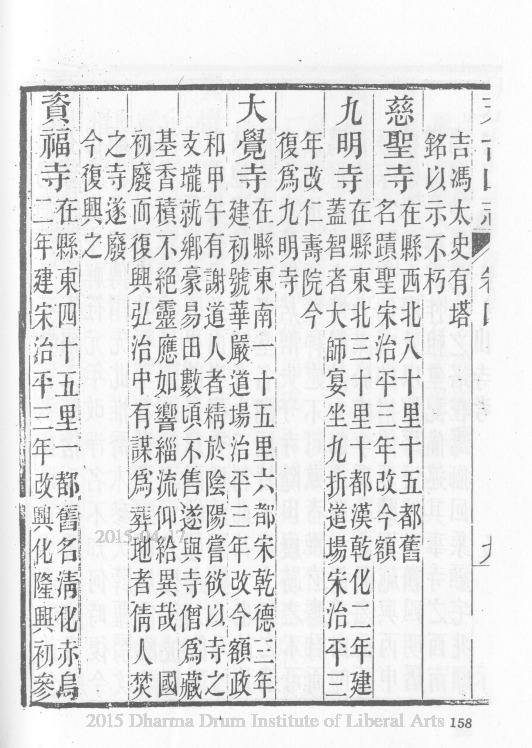 山志 卷四
吉馮太史有塔
銘以示不朽
慈聖寺在縣西北八十里十五都舊
名蹟聖宋治平三年改今額
九明寺在縣東北三十里十都漢乾化二年建
蓋智者大師宴坐九折道場宋治平三
年改仁壽院今
復爲九明寺
大覺寺在縣東南二十五里六都宋乾德三年
建初號華嚴道場治平三年改今額政
和甲午有謝道人者精於陰陽嘗欲以寺之
支壠就鄉豪易田數頃不售遂與寺僧爲藏
基香積不絕靈應如響緇流仰給異哉國
初廢而復興弘治中有謀爲葬地者倩人焚
之寺遂廢
今復興之
資福寺在縣東四十五里一都舊名清化赤烏
二年建宋治平三年改興化隆興初參
2015-04-17
2015 Dharma Drum Institute of Liberal Arts 158